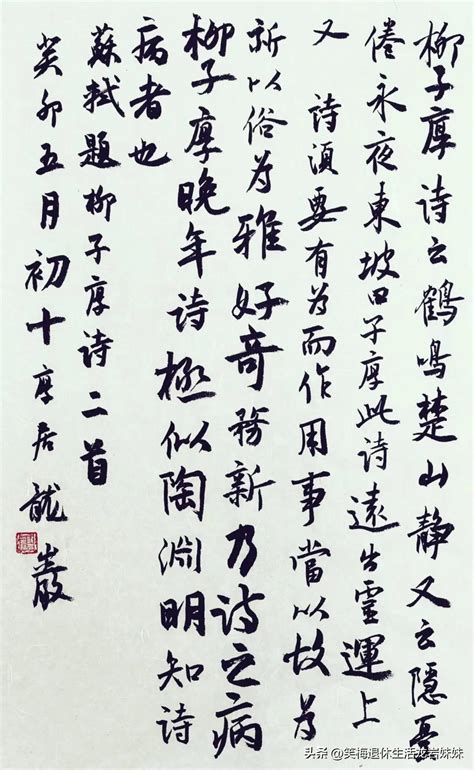 柳子厚诗云鹤鸣楚山静又云隐憂
倦永夜東坡曰子厚此诗遠出靈運上
又 诗須要有为而作用事當以故为
新以俗为雅好奇務新乃诗之病
柳子厚晚年诗極似陶渊明知诗
病者也
蘇軾題柳子厚诗二首
癸卯五月初十厚居龍巖
头条@笑梅退休生活龙岩妹妹